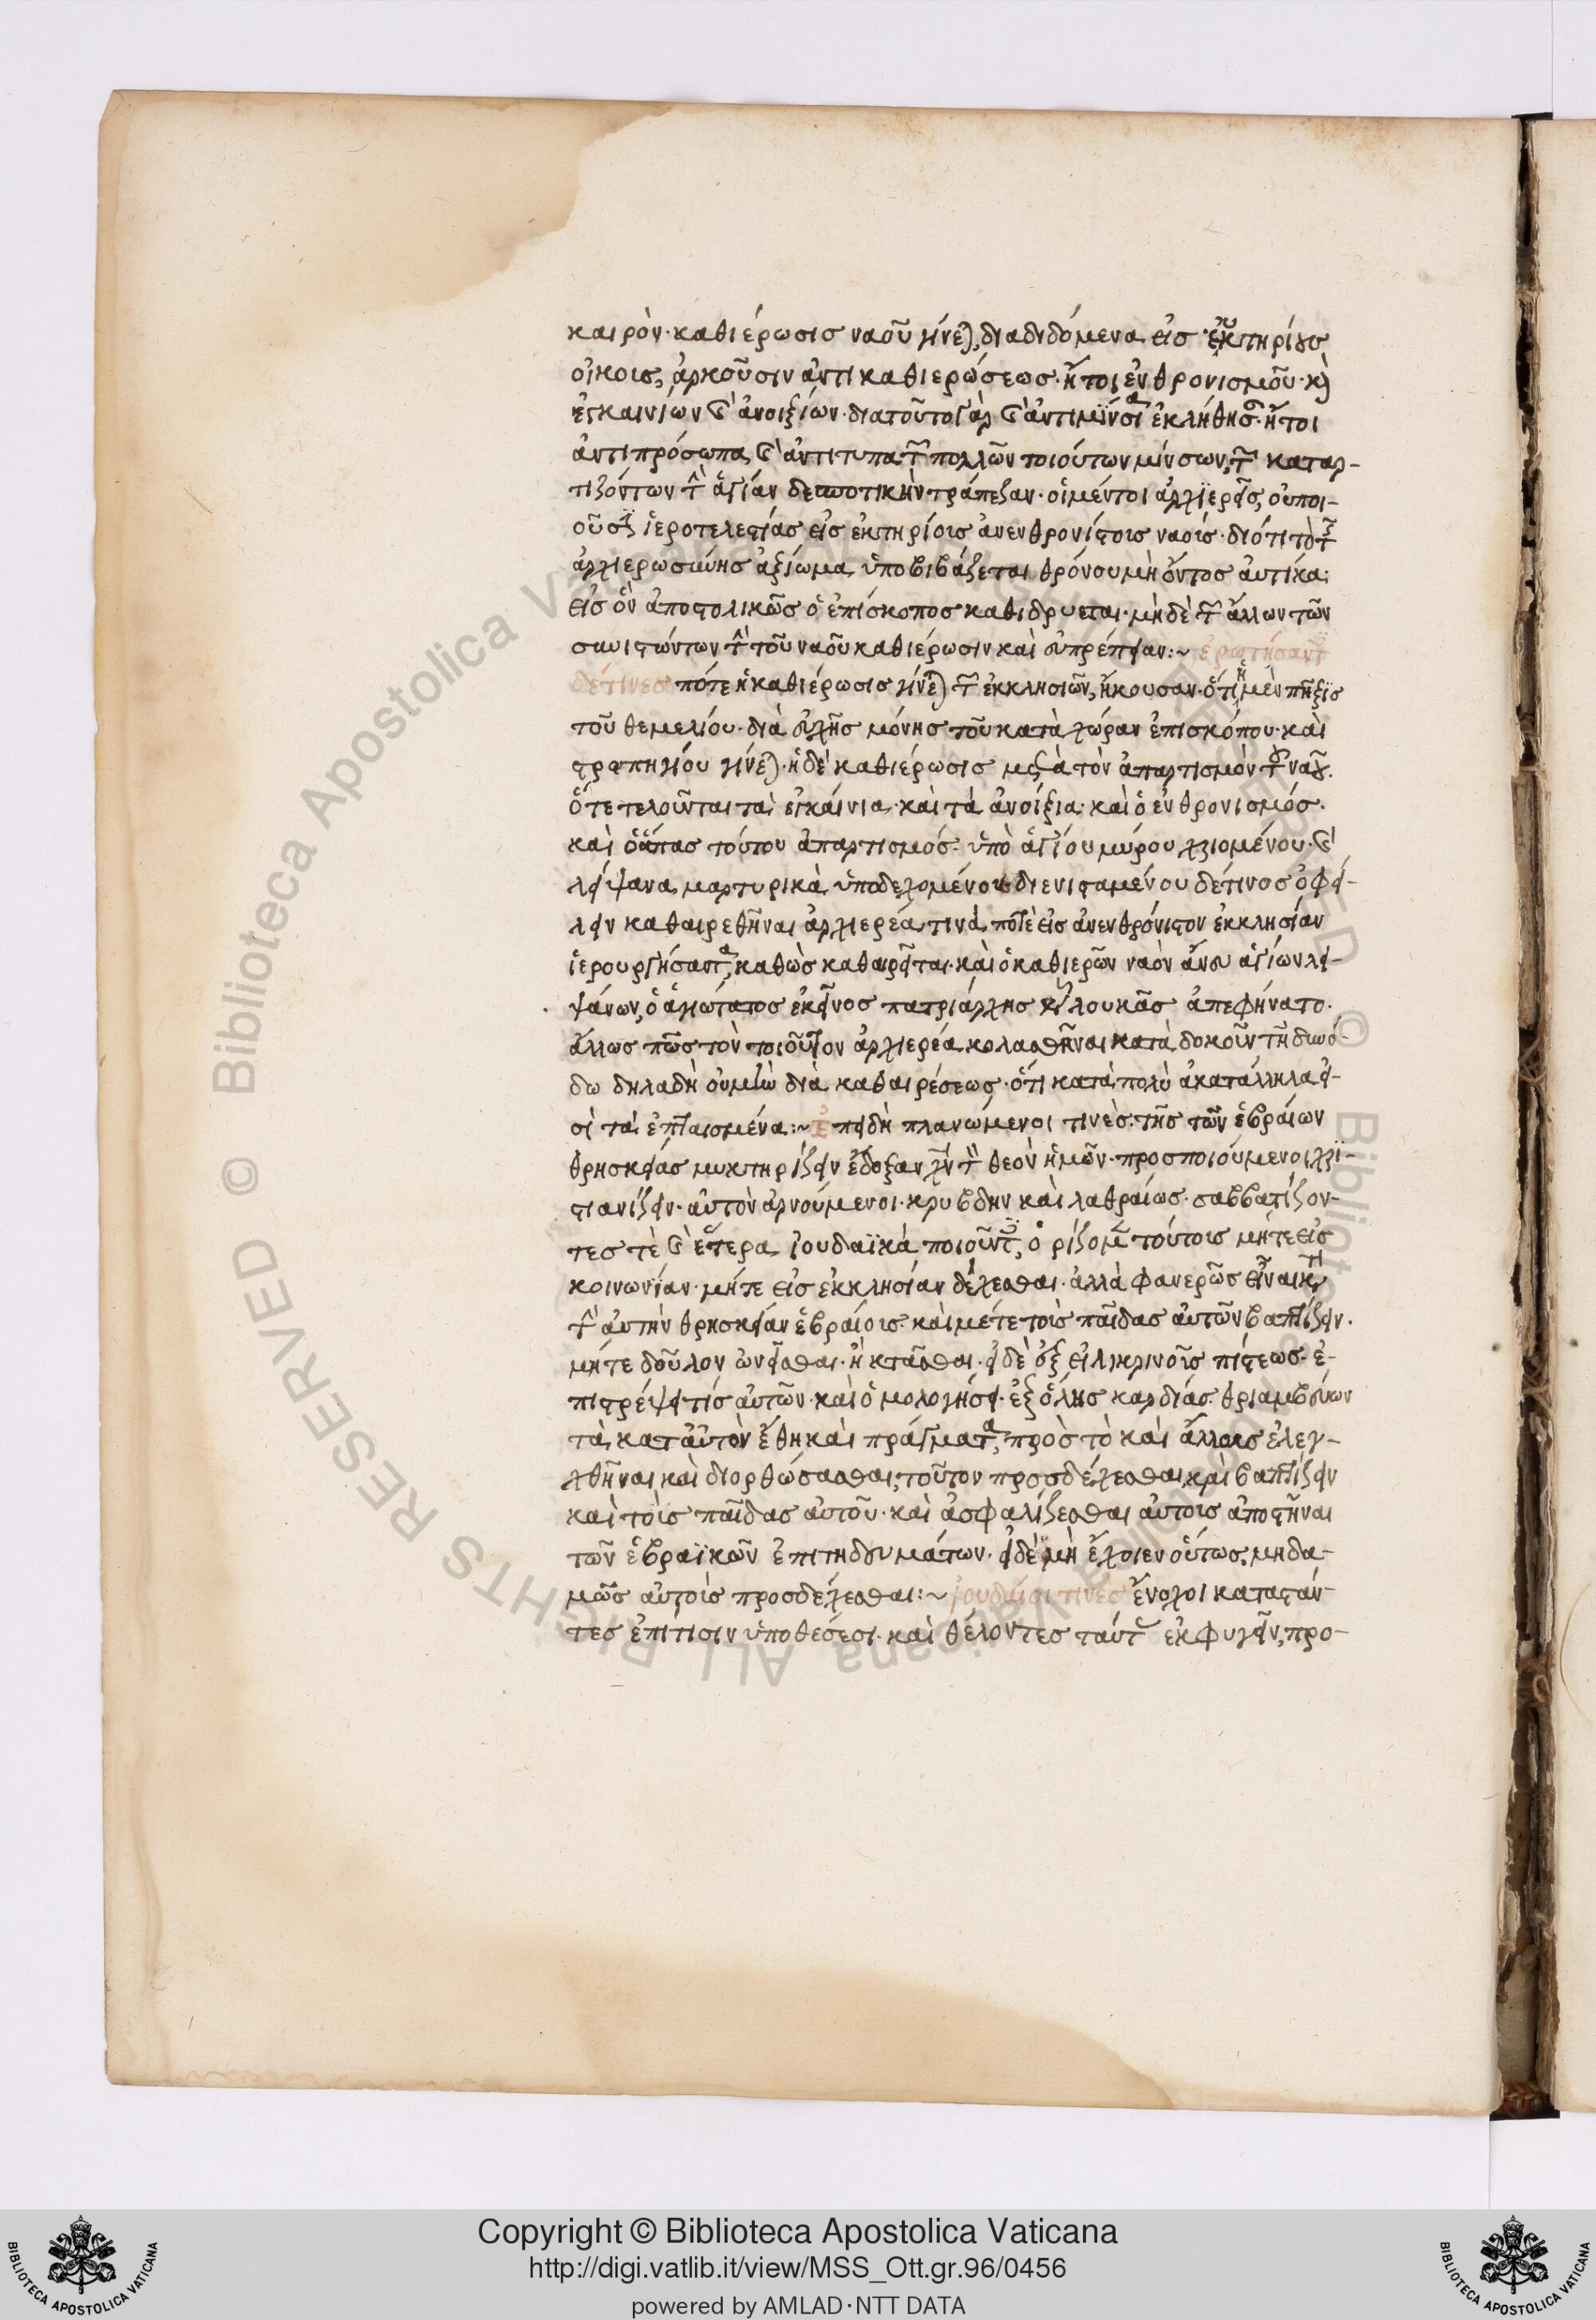 καιρὸν· καθιέρωσις ναοῦ γίνεται, διαδιδόμενα εἰς εὐκτηρίους
οἴκοις, ἀρκοῦσιν ἀντι καθιερώσεως· ἤτοι ἐνθρονισμοῦ· καὶ
ἐγκαινίων καὶ ἀνοιξίων· διατοῦτο γὰρ καὶ ἀντιμίνσια ἐκλήθησαν· ἤτοι
ἀντιπρόσωπα, καὶ ἀντίτυπα τῶν πολλῶν τοιούτων μίνσων, τῶν καταρ-
τιζόντων τὴν ἁγίαν δεσποτικὴν τράπεζαν· οἱ μέντοι ἀρχιερεῖς, οὐ ποι-
οῦσιν ἱεροτελεστίας εἰς εὐκτηρίοις ἀνενθρονίστοις ναοῖς· διότι τὸ τῆς
ἀρχιερωσύνης ἀξίωμα ὑποβιβάζεται θρόνου μὴ ὄντος αὐτίκα;
εἰς ὃν ἀποστολικῶς ὁ ἐπίσκοπος καθιδρυεται· μὴ δὲ τῶν ἄλλων τῶν
συνιστώντων τὴν τοῦ ναοῦ καθιέρωσιν καὶ εὐπρέπειαν:~ ἐρωτήσαντες
δέ τινες πότε ἡ καθιέρωσις γίνεται τῶν ἐκκλησιῶν, ἤκουσαν· ὅτι ἡ μὲν πῆξις
τοῦ θεμελίου· διὰ εὐχῆς μόνης τοῦ κατὰ χώραν ἐπισκόπου· καὶ
στραπηγίου γίνεται· ἡ δὲ καθιέρωσις μετὰ τὸν ἀπαρτισμὸν τοῦ ναοῦ.
ὅτε τελοῦνται τὰ ἐγκαίνια· καὶ τὰ ἀνοίξια· καὶ ὁ ἐνθρονισμός·
καὶ ὁ ἅπας τούτου ἀπαρτισμός· ὑπὸ ἁγίου μύρου χριομένου· καὶ
λείψανα μαρτυρικὰ ὑποδεχομένου διενισταμένου δέ τινος ὀφεί-
λειν καθαιρεθῆναι ἀρχιερέα τινὰ ποτὲ εἰς ἀνενθρόνιστον ἐκκλησίαν
ἱερουργήσαντα, καθὼς καθαιρεῖται· καὶ ὁ καθιερῶν ναὸν ἄνευ ἁγίων λει-
ψάνων, ὁ ἁγιώτατος ἐκεῖνος πατριάρχης κῦρ λουκᾶς ἀπεφήνατο·
ἄλλως πῶς τὸν τοιοῦτον ἀρχιερέα κολασθῆναι κατὰ δοκοῦν τῇ συνό-
δω δηλαδὴ οὐ μὴν διὰ καθαιρέσεως· ὅτι κατὰ πολὺ ἀκατάλληλα εἰ-
σὶ τὰ ἐπταισμένα:~ ἐπειδὴ πλανώμενοι τινὲς τῆς τῶν ἑβραίων
θρησκείας μυκτηρίζειν ἔδοξαν χριστὸν τὸν θεὸν ἡμῶν· προσποιούμενοι χρι-
στιανίζειν· αὐτὸν ἀρνούμενοι· κρυβδην καὶ λαθραίως· σαββατίζον-
τες τὲ καὶ ἕτερα ἰουδαϊκὰ ποιοῦντες, ὁρίζομεν τούτοις μήτε εἰς
κοινωνίαν· μήτε εἰς ἐκκλησίαν δέχεσθαι· ἀλλὰ φανερῶς εἶναι κατὰ
τὴν αὐτὴν θρησκείαν ἑβραίοις· καὶ μέτε τοὶς παῖδας αὐτῶν βαπτίζειν·
μήτε δοῦλον ὠνεῖσθαι· ἢ κτᾶσθαι· εἰ δὲ ἐξ εἰλικρινοῖς πίστεως· ἐ-
πιστρέψει τίς αὐτῶν· καὶ ὁμολογήσει· ἐξ ὅλης καρδίας· θριαμβεύων
τὰ κατ αὐτὸν ἔθη καὶ πράγματα, πρὸς τὸ καὶ ἄλλοις ἐλεγ-
χθῆναι καὶ διορθώσασθαι, τοῦτον προσδέχεσθαι, καὶ βαπτίζειν
καὶ τοὶς παῖδας αὐτοῦ· καὶ ἀσφαλίζεσθαι αὐτοις ἀποστῆναι
τῶν ἑβραϊκῶν ἐπιτηδευμάτων· εἰ δὲ μὴ ἔχοιεν οὕτως, μηδα-
μῶς αὐτοὶς προσδέχεσθαι:~ ἰουδαίοι τινές ἔνοχοι καταστάν-
τες ἐπίτισιν ὑποθέσεσι· καὶ θέλοντες ταύτας ἐκφυγεῖν, προ-
Copyright © Biblioteca Apostolica Vaticana
http://digi.vatlib.it/view/MSS_Ott.gr.96/0456
powered by AMLAD·NTT DATA